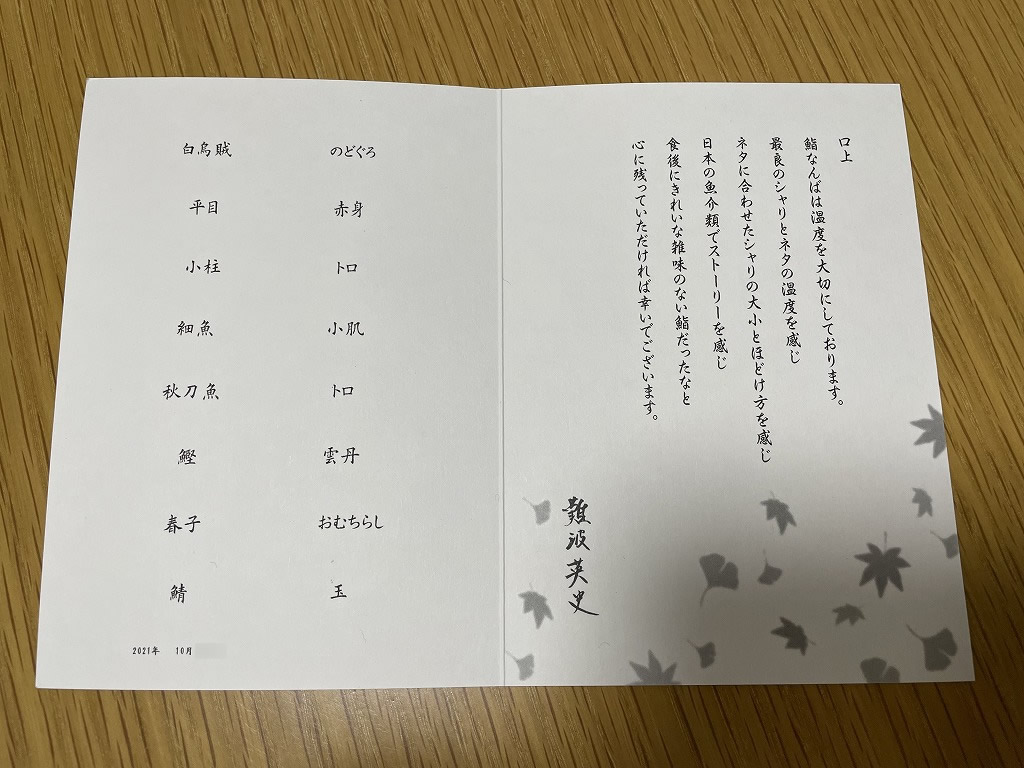 口上
鮨なんばは温度を大切にしております。
最良のシャリとネタの温度を感じ
ネタに合わせたシャリの大小とほどけ方を感じ
日本の魚介類でストーリーを感じ
食後にきれいな雑味のない鮨だったなと
心に残っていただければ幸いでございます。
難波英史
白烏賊
平目
小柱
細魚
秋刀魚
鰹
春子
鯖
のどぐろ
赤身
トロ
小肌
トロ
雲丹
おむちらし
玉
2021年 10月